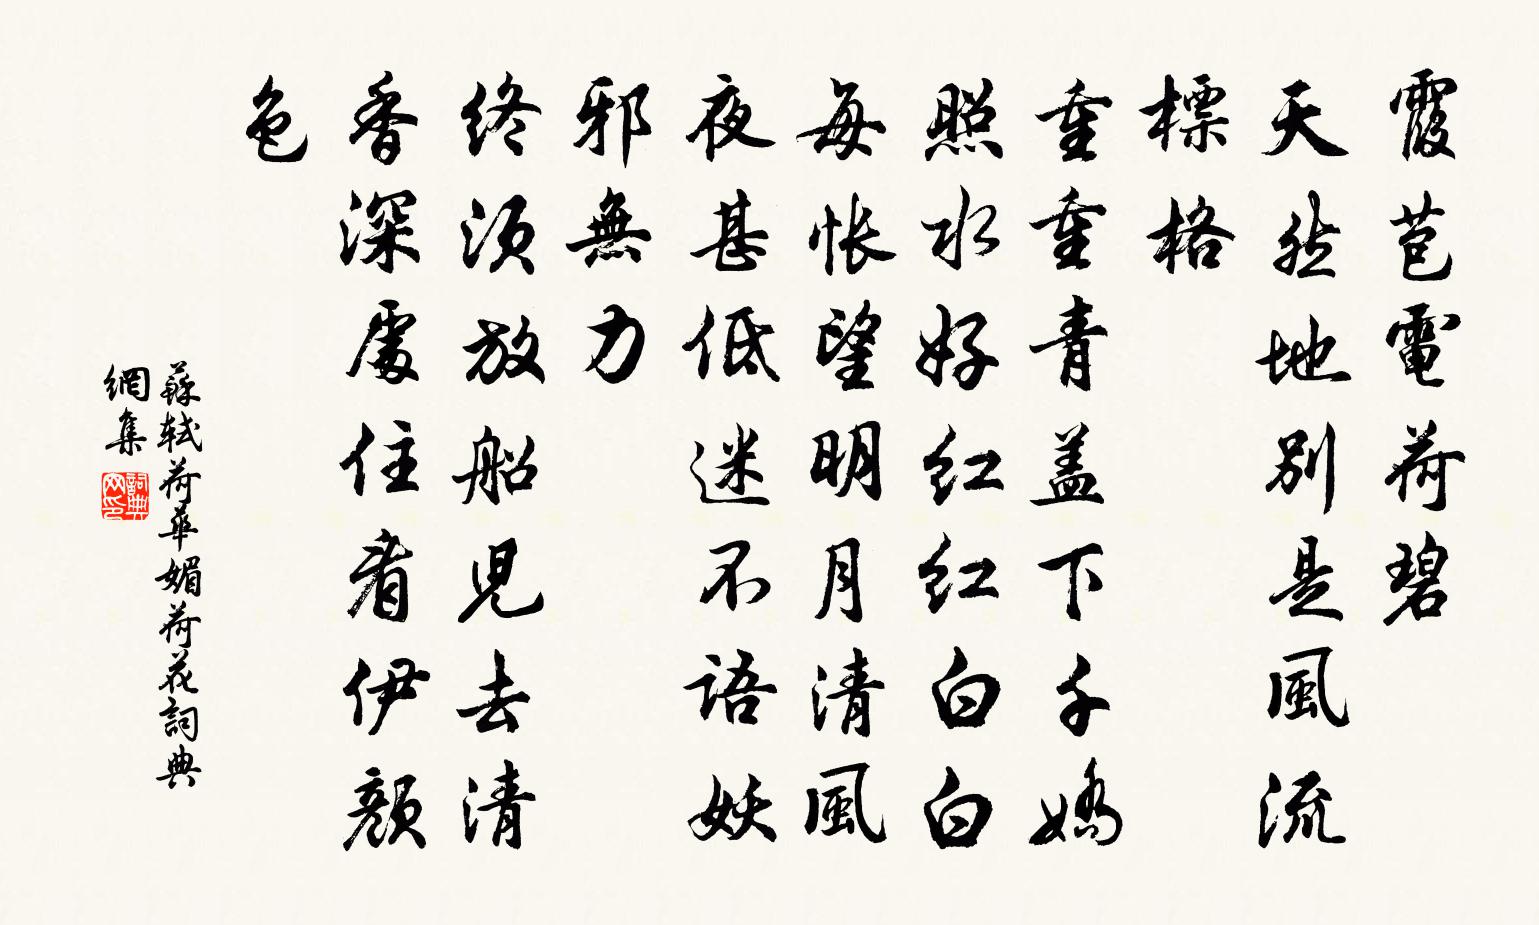 霞苞電荷碧
天然地別是風流
標格
重重青盖下千嬌
照水好红红白白
每怅望明月清風
夜甚低迷不語妖
邪無力
终須放船兒去清
香深處住看伊顏
色
蘇軾荷華媚荷花詞典
網集
詞典
网印